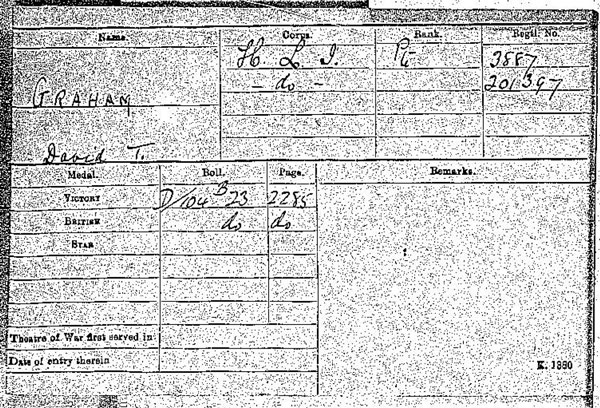 Name. Corps. Rank. Regtl. No.
H. L. I. Pte 3887
GRAHAM - do - 201397
David T.
Medal. Roll. Page. Remarks.
VICTORY D/104 B 23 2285
BRITISH do do
STAR
Theatre of War first served in
Date of entry therein
K. 1380